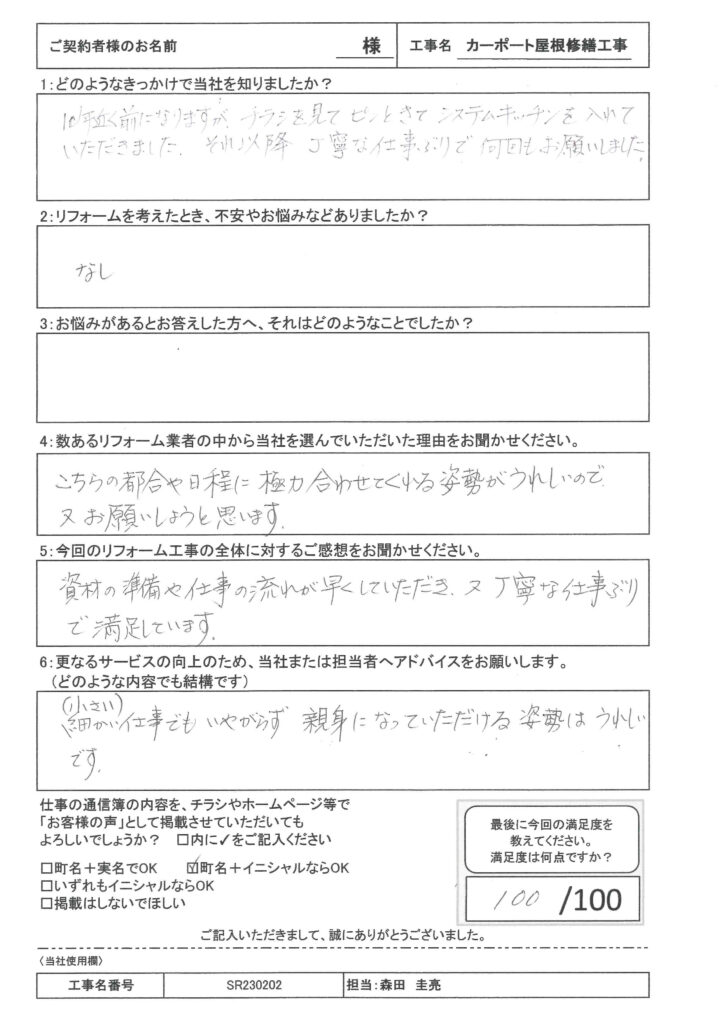 ご契約者様のお名前 様 工事名 カーポート屋根修繕工事
1:どのようなきっかけで当社を知りましたか?
10年近く前になりますが、チラシを見て ピンときて システムキッチンを 入れて
いただきました。それ以降 丁寧な仕事ぶりで 何回もお願いしました。
2:リフォームを考えたとき、不安やお悩みなどありましたか?
なし
3:お悩みがあるとお答えした方へ、それはどのようなことでしたか?
4:数あるリフォーム業者の中から当社を選んでいただいた理由をお聞かせください。
こちらの都合や日程に 極力 合わせてくれる 姿勢が うれしいので
又 お願いしようと思います。
5:今回のリフォーム工事の全体に対するご感想をお聞かせください。
資材の準備や仕事の流れが早くしていただき、又 丁寧な仕事ぶり
で 満足しています。
6:更なるサービスの向上のため、当社または担当者へアドバイスをお願いします。
(どのような内容でも結構です)
(小さい)
細かい仕事でも いやがらず 親身になっていただける 姿勢は うれしい
です。
仕事の通信簿の内容を、チラシやホームページ等で
「お客様の声」として掲載させていただいても
よろしいでしょうか? □内に✓をご記入ください
□町名+実名でOK ☑町名+イニシャルならOK
□いずれもイニシャルならOK
□掲載はしないでほしい
最後に今回の満足度を
教えてください。
満足度は何点ですか?
100 /100
ご記入いただきまして、誠にありがとうございました。
〈当社使用欄〉
工事名番号 SR230202 担当:森田 圭亮